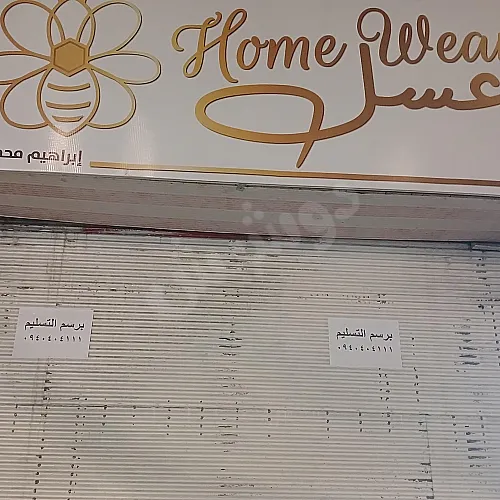 Home Wear
عسل
إبراهيم محمد
برسم التسليم
٠٩٤٠٤٠٤١١١
برسم التسليم
٠٩٤٠٤٠٤١١١